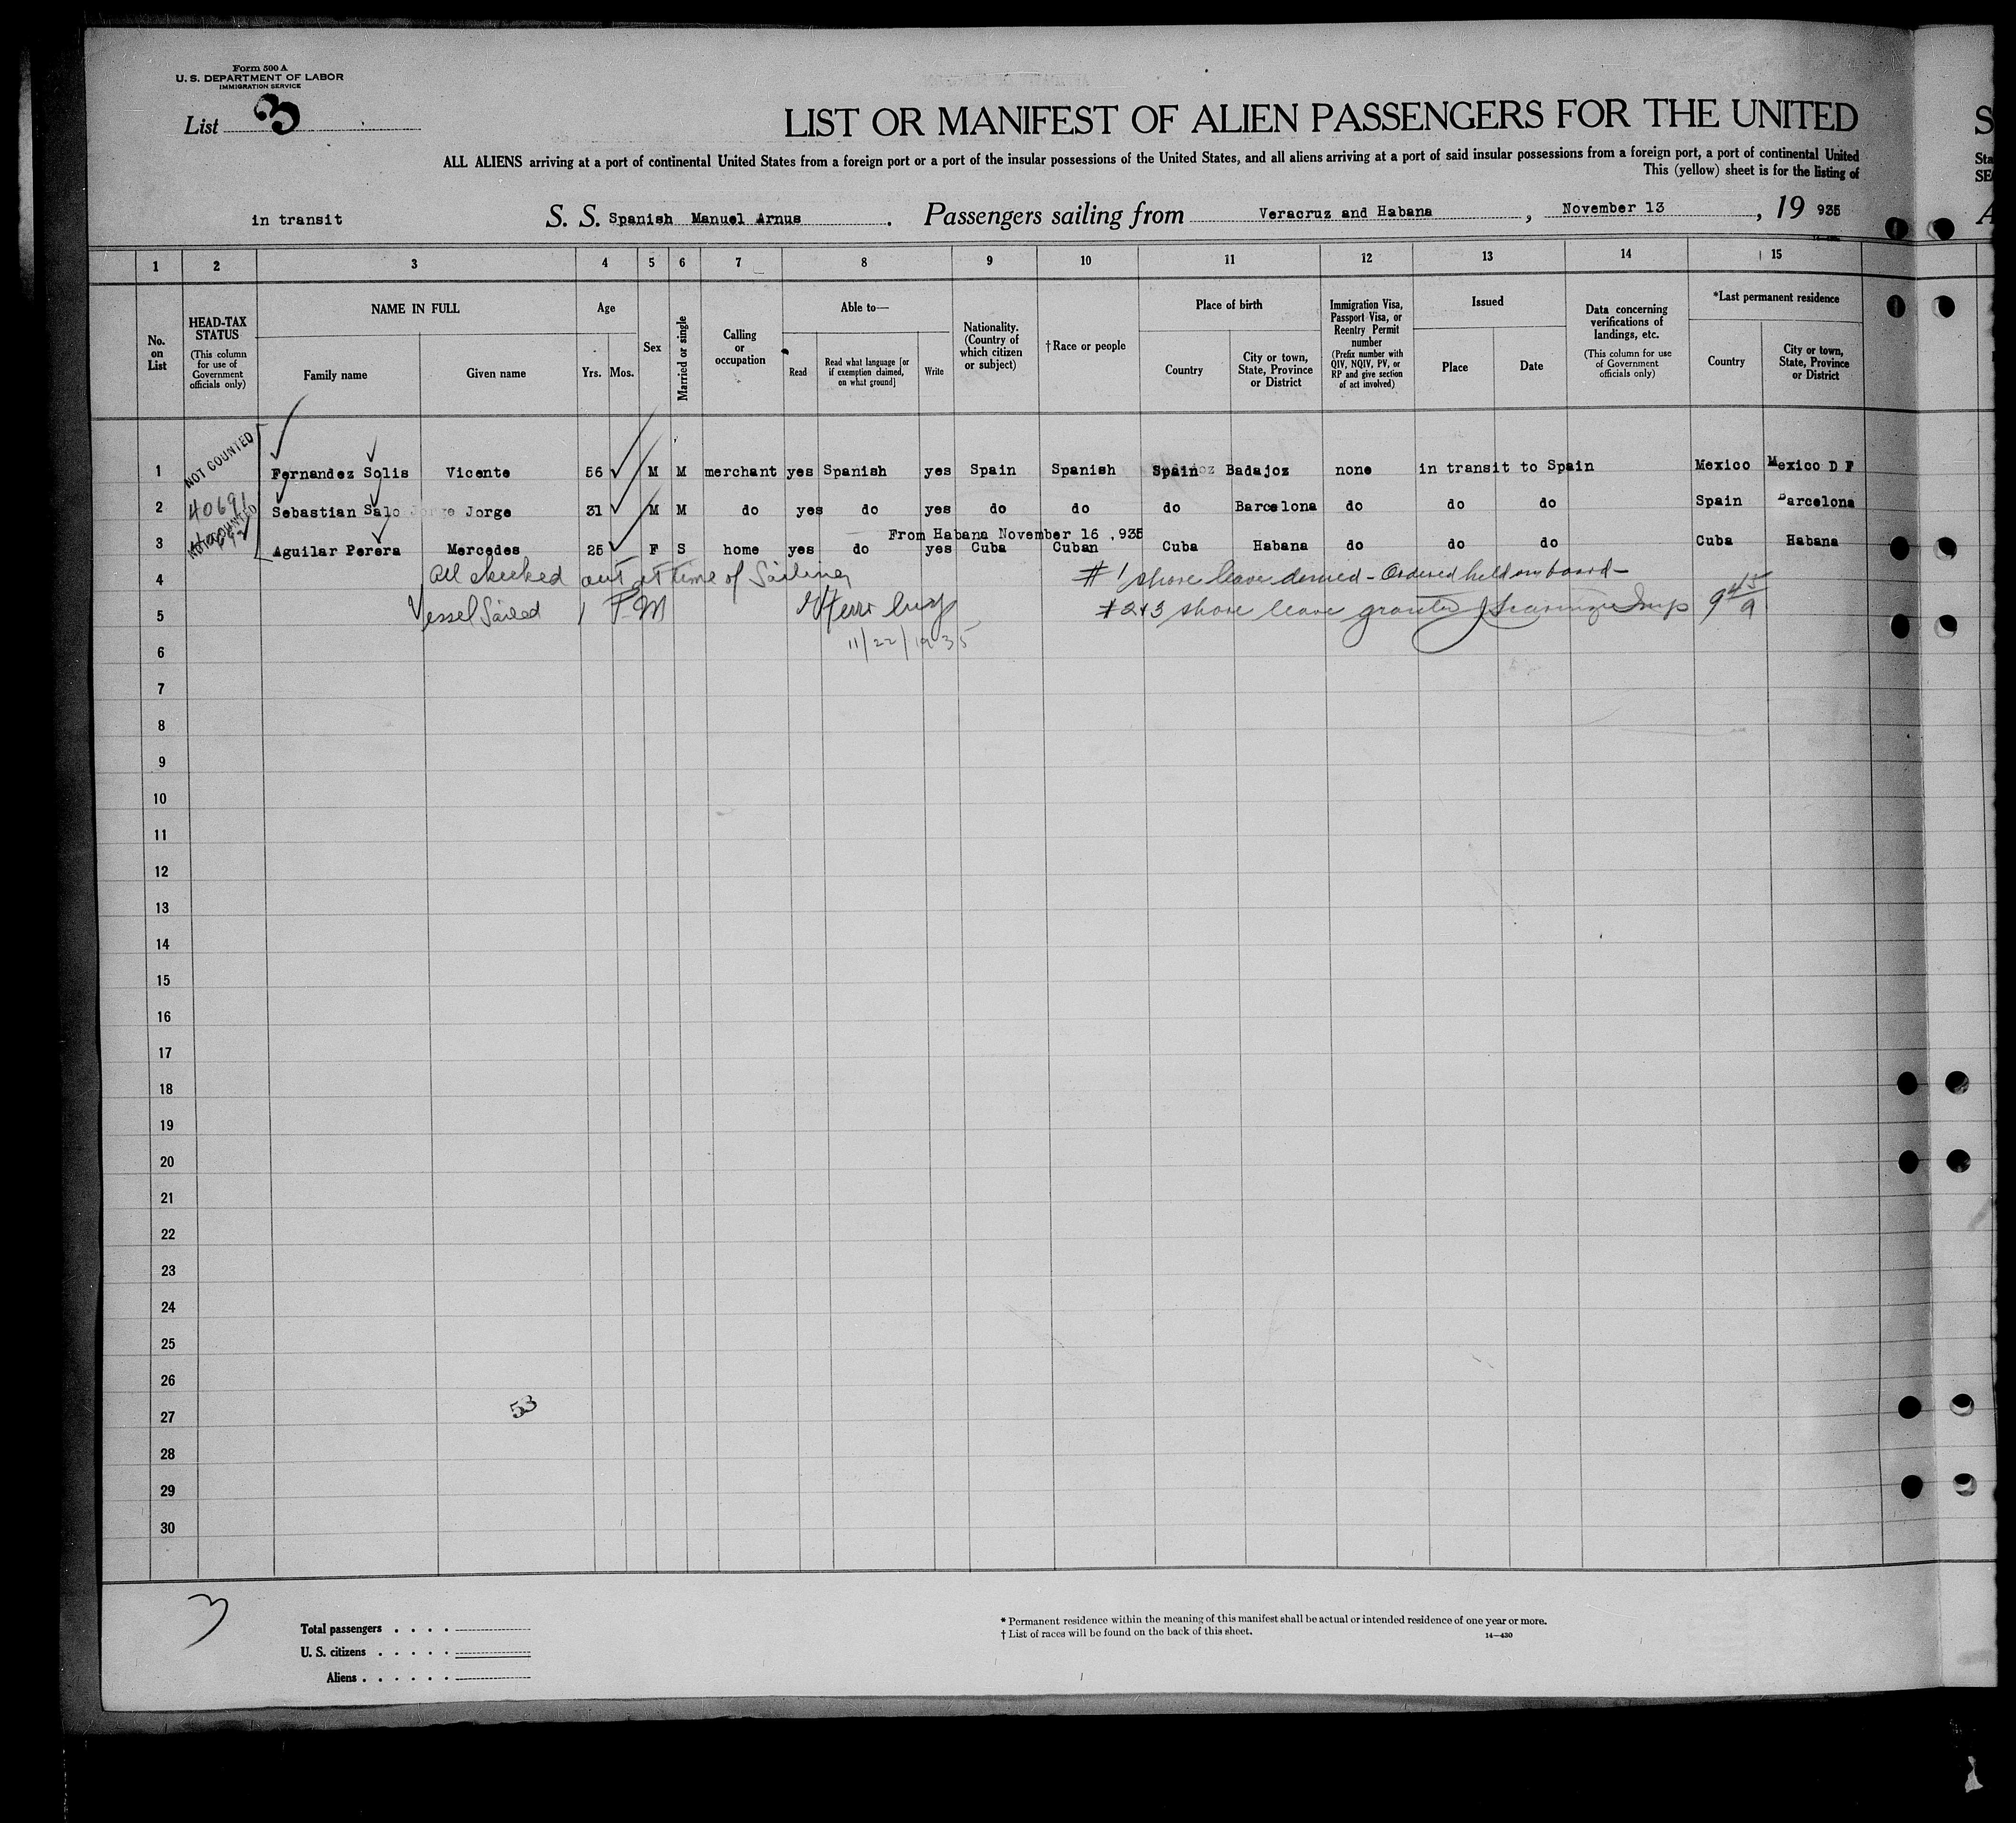 Form 500 A
U. S. DEPARTMENT OF LABOR
IMMIGRATION SERVICE
List 3
LIST OR MANIFEST OF ALIEN PASSENGERS FOR THE UNITED
ALL ALIENS arriving at a port of continental United States from a foreign port or a port of the insular possessions of the United States, and all aliens arriving at a port of said insular possessions from a foreign port, a port of continental United
This (yellow) sheet is for the listing of
in transit S. S. Spanish Manuel Arnus. Passengers sailing from Veracruz and Habana, November 13, 19 935
1 2 3 4 5 6 7 8 9 10 11 12 13 14 15
No. on List
HEAD-TAX STATUS
(This column for use of Government officials only)
NAME IN FULL
Family name Given name
Age
Yrs. Mos.
Sex
Married or single
Calling or occupation
Able to—
Read
Read what language [or if exemption claimed, on what ground]
Write
Nationality. (Country of which citizen or subject)
†Race or people
Place of birth
Country
City or town, State, Province or District
Immigration Visa, Passport Visa, or Reentry Permit number
(Prefix number with QIV, NQIV, PV, or RP and give section of act involved)
Issued
Place Date
Data concerning verifications of landings, etc.
(This column for use of Government officials only)
*Last permanent residence
Country
City or town, State, Province or District
1 NOT COUNTED Fernandez Solis Vicente 56 M M merchant yes Spanish yes Spain Spanish Spain Badajoz none in transit to Spain Mexico Mexico D F
2 40691 Sebastian Salo Jorge 31 M M do yes do yes do do do Barcelona do do do Spain Barcelona
From Habana November 16 ,935
3 NOT COUNTED Aguilar Perera Mercedes 25 F S home yes do yes Cuba Cuban Cuba Habana do do do Cuba Habana
4 All checked out at time of Sailing #1 shore leave denied - Ordered held on board -
5 Vessel Sailed 1 P M #2+3 shore leave granted Insp
6 11/22/1935
7
8
9
10
11
12
13
14
15
16
17
18
19
20
21
22
23
24
25
26
27
28
29
30
53
3
Total passengers
U. S. citizens
Aliens
* Permanent residence within the meaning of this manifest shall be actual or intended residence of one year or more.
† List of races will be found on the back of this sheet. 14—430